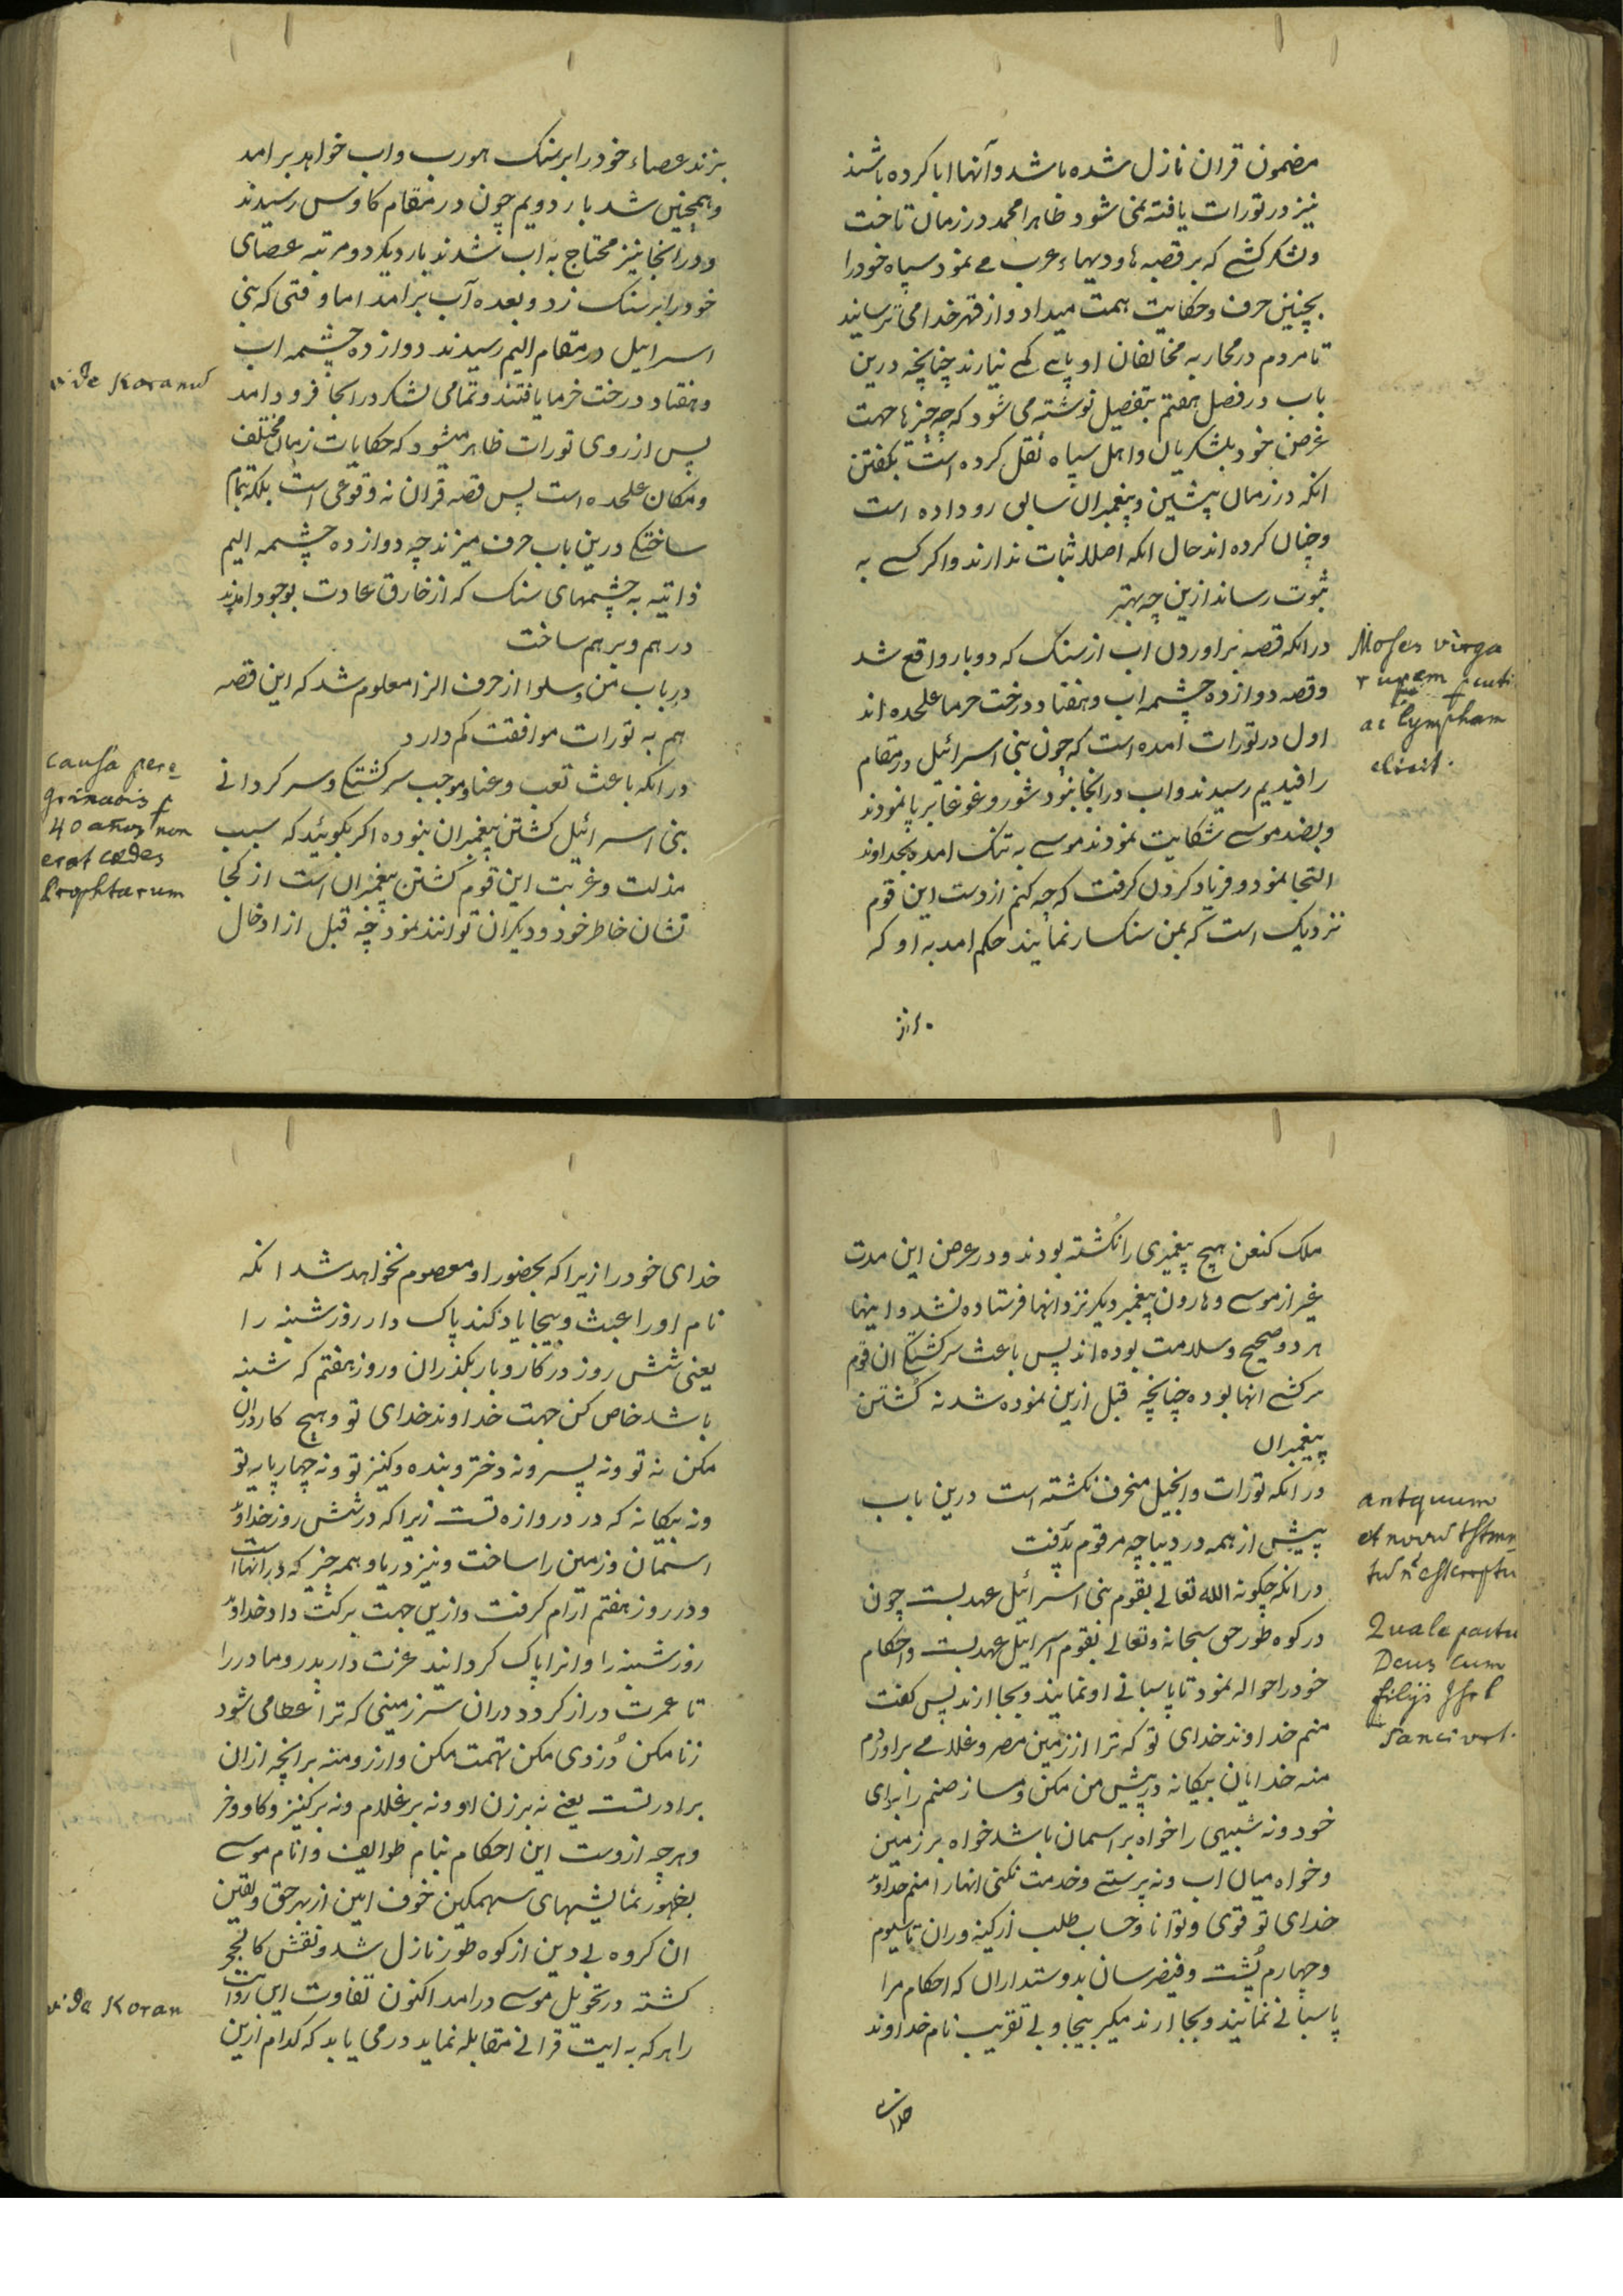 مضمون قران نازل شده باشد و آنها ابا کرده باشند
نیز در تورات یافته نمی شود ظاهرا محمد در زمان تاخت
و لشکر کشی که بر قصبه ها و دیهاء عرب می نمود سپاه خود را
بچنین حرف و حکایت همت میداد و از قهر خدا می ترسانید
تا مردم در محاربه مخالفان او پای کمی نیارند چنانچه درین
باب در فصل هفتم بتفصیل نوشته می شود که چه چیزها جهت
غرض خود بلشکریان و اهل سپاه نقل کرده است بگفتن
انکه در زمان پیشین و پیغمبران سابق رو داده است
و چنان کرده اند حال انکه اصلا ثبات ندارند و اگر کسی به
ثبوت رساند ازین چه بهتر
در انکه قصه براوردن اب از سنک که دو بار واقع شد
و قصه دوازده چشمه اب و هفتاد درخت خرما علحده اند
اول در تورات امده است که چون بنی اسرائیل در مقام
رافیدیم رسیدند و اب در انجا نبود شور و غوغا بر پا نمودند
و بضد موسی شکایت نمودند موسی به تنک امده بخداوند
التجا نمود و فریاد کردن گرفت که چه کنم از دست این قوم
نزدیک است که بمن سنکسار نمایند حکم امد به او که
Moses virga
rupem
ac lympham
elicit.
بزند عصاء خود را بر سنک هورب و اب خواهد برامد
و همچنین شد بار دویم چون در مقام کاوس رسیدند
و در انجا نیز محتاج به اب شدند بار دیکر دو مرتبه عصای
خود را بر سنک زد و بعده آب برامد اما وقتی که بنی
اسرائیل در مقام الیم رسیدند دوازده چشمه اب
و هفتاد درخت خرما یافتند و تمامی لشکر در انجا فرود امد
پس از روی تورات ظاهر میشود که حکایات زمان مختلف
و مکان علحده است پس قصه قران نه وقوعی است بلکه بتمام
ساختکی درین باب حرف میزند چه دوازده چشمه الیم
ذاتیه به چشمهای سنک که از خارق عادت بوجود امدند
در هم و بر هم ساخت
در باب من و سلوا از حرف الزا معلوم شد که این قصه
هم به تورات موافقت کم دارد
در انکه باعث تعب و عنا و موجب سرکشتکی و سر کردانی
بنی اسرائیل کشتن پیغمبران نبوده اکر بکوئید که سبب
مذلت و غربت این قوم کشتن پیغمبران است از کجا
نشان خاطر خود و دیکران توانند نمود چه قبل از ادخال
vide Koranu
Causa pere
grinaois p
40 años non
erat cædes
Prophtarum
ملک کنعن هیچ پیغمبری را نکشته بودند و در عرض این مدت
غیر از موسی و هارون پیغمبر دیکر نزد انها فرستاده نشد و اینها
هر دو صحیح و سلامت بوده اند پس باعث سرکشتکی ان قوم
سرکشی انها بوده چنانچه قبل ازین نموده شد نه کشتن
پیغمبران
در انکه تورات و انجیل منحرف نکشته است درین باب
پیش از همه در دیباچه مرقوم پذیرفت
در انکه چکونه الله تعالی بقوم بنی اسرائیل عهد بست چون
در کوه طور حق سبحانه و تعالی بقوم اسرائیل عهد بست و احکام
خود را حواله نمود تا پاسبانی او نمایند و بجا ارند پس کفت
منم خداوند خدای تو که ترا از زمین مصر و غلامی براوردم
منه خدایان بیکانه در پیش من مکن و مساز صنم را برای
خود و نه شبیهی را خواه بر اسمان باشد خواه بر زمین
و خواه میان اب و نه پرستی و خدمت نکنی انهارا منم خداوند
خدای تو قوی و توانا و حساب طلب از کینه وران تا سیوم
و چهارم پُشت و فیض رسان بدوستداران که احکام مرا
پاسبانی نمایند و بجا ارند میکیر بیجا و بی تقریب نام خداوند
antquum
et novu tstmn
tu
Quale pactu
Deus cum
filijs
Sancivit.
خدای خود را زیرا که بحضور او معصوم نخواهد شد انکه
نام او را عبث و بیجا یاد کند پاک دار روز شنبه را
یعنی شش روز در کار و بار بکذران و روز هفتم که شنبه
باشد خاص کن جهت خداوند خدای تو و هیچ کار دران
مکن نه تو و نه پسر و نه دختر و بنده و کنیز تو و نه چهارپایه تو
و نه بیکانه که در دروازه تست زیرا که در شش روز خداوند
اسمان و زمین را ساخت و نیز دریا و همه چیز که در انها است
و در روز هفتم ارام کرفت و ازین جهت برکت داد خداوند
روز شنبه را و انرا پاک کردانید عزت دار پدر و مادر را
تا عمرت دراز کردد دران سرزمینی که ترا عطا می شود
زنا مکن دُزدی مکن تهمت مکن و ارزو منه بر انچه ازان
برادر تست یعنی نه بر زن او و نه بر غلام و نه بر کنیز و کاو و خر
و هر چه ازوست این احکام بنام طوایف و انام موسی
بظهور نمایشهای سهمکین خوف امین از بهر حق و یقین
ان کروه بی دین از کوه طور نازل شد و نقش کالحجر
کشته در تحویل موسی درامد اکنون تفاوت این روایت
را هر که به ایت قرانی مقابله نماید در می یابد که کدام ازین
vide Koran